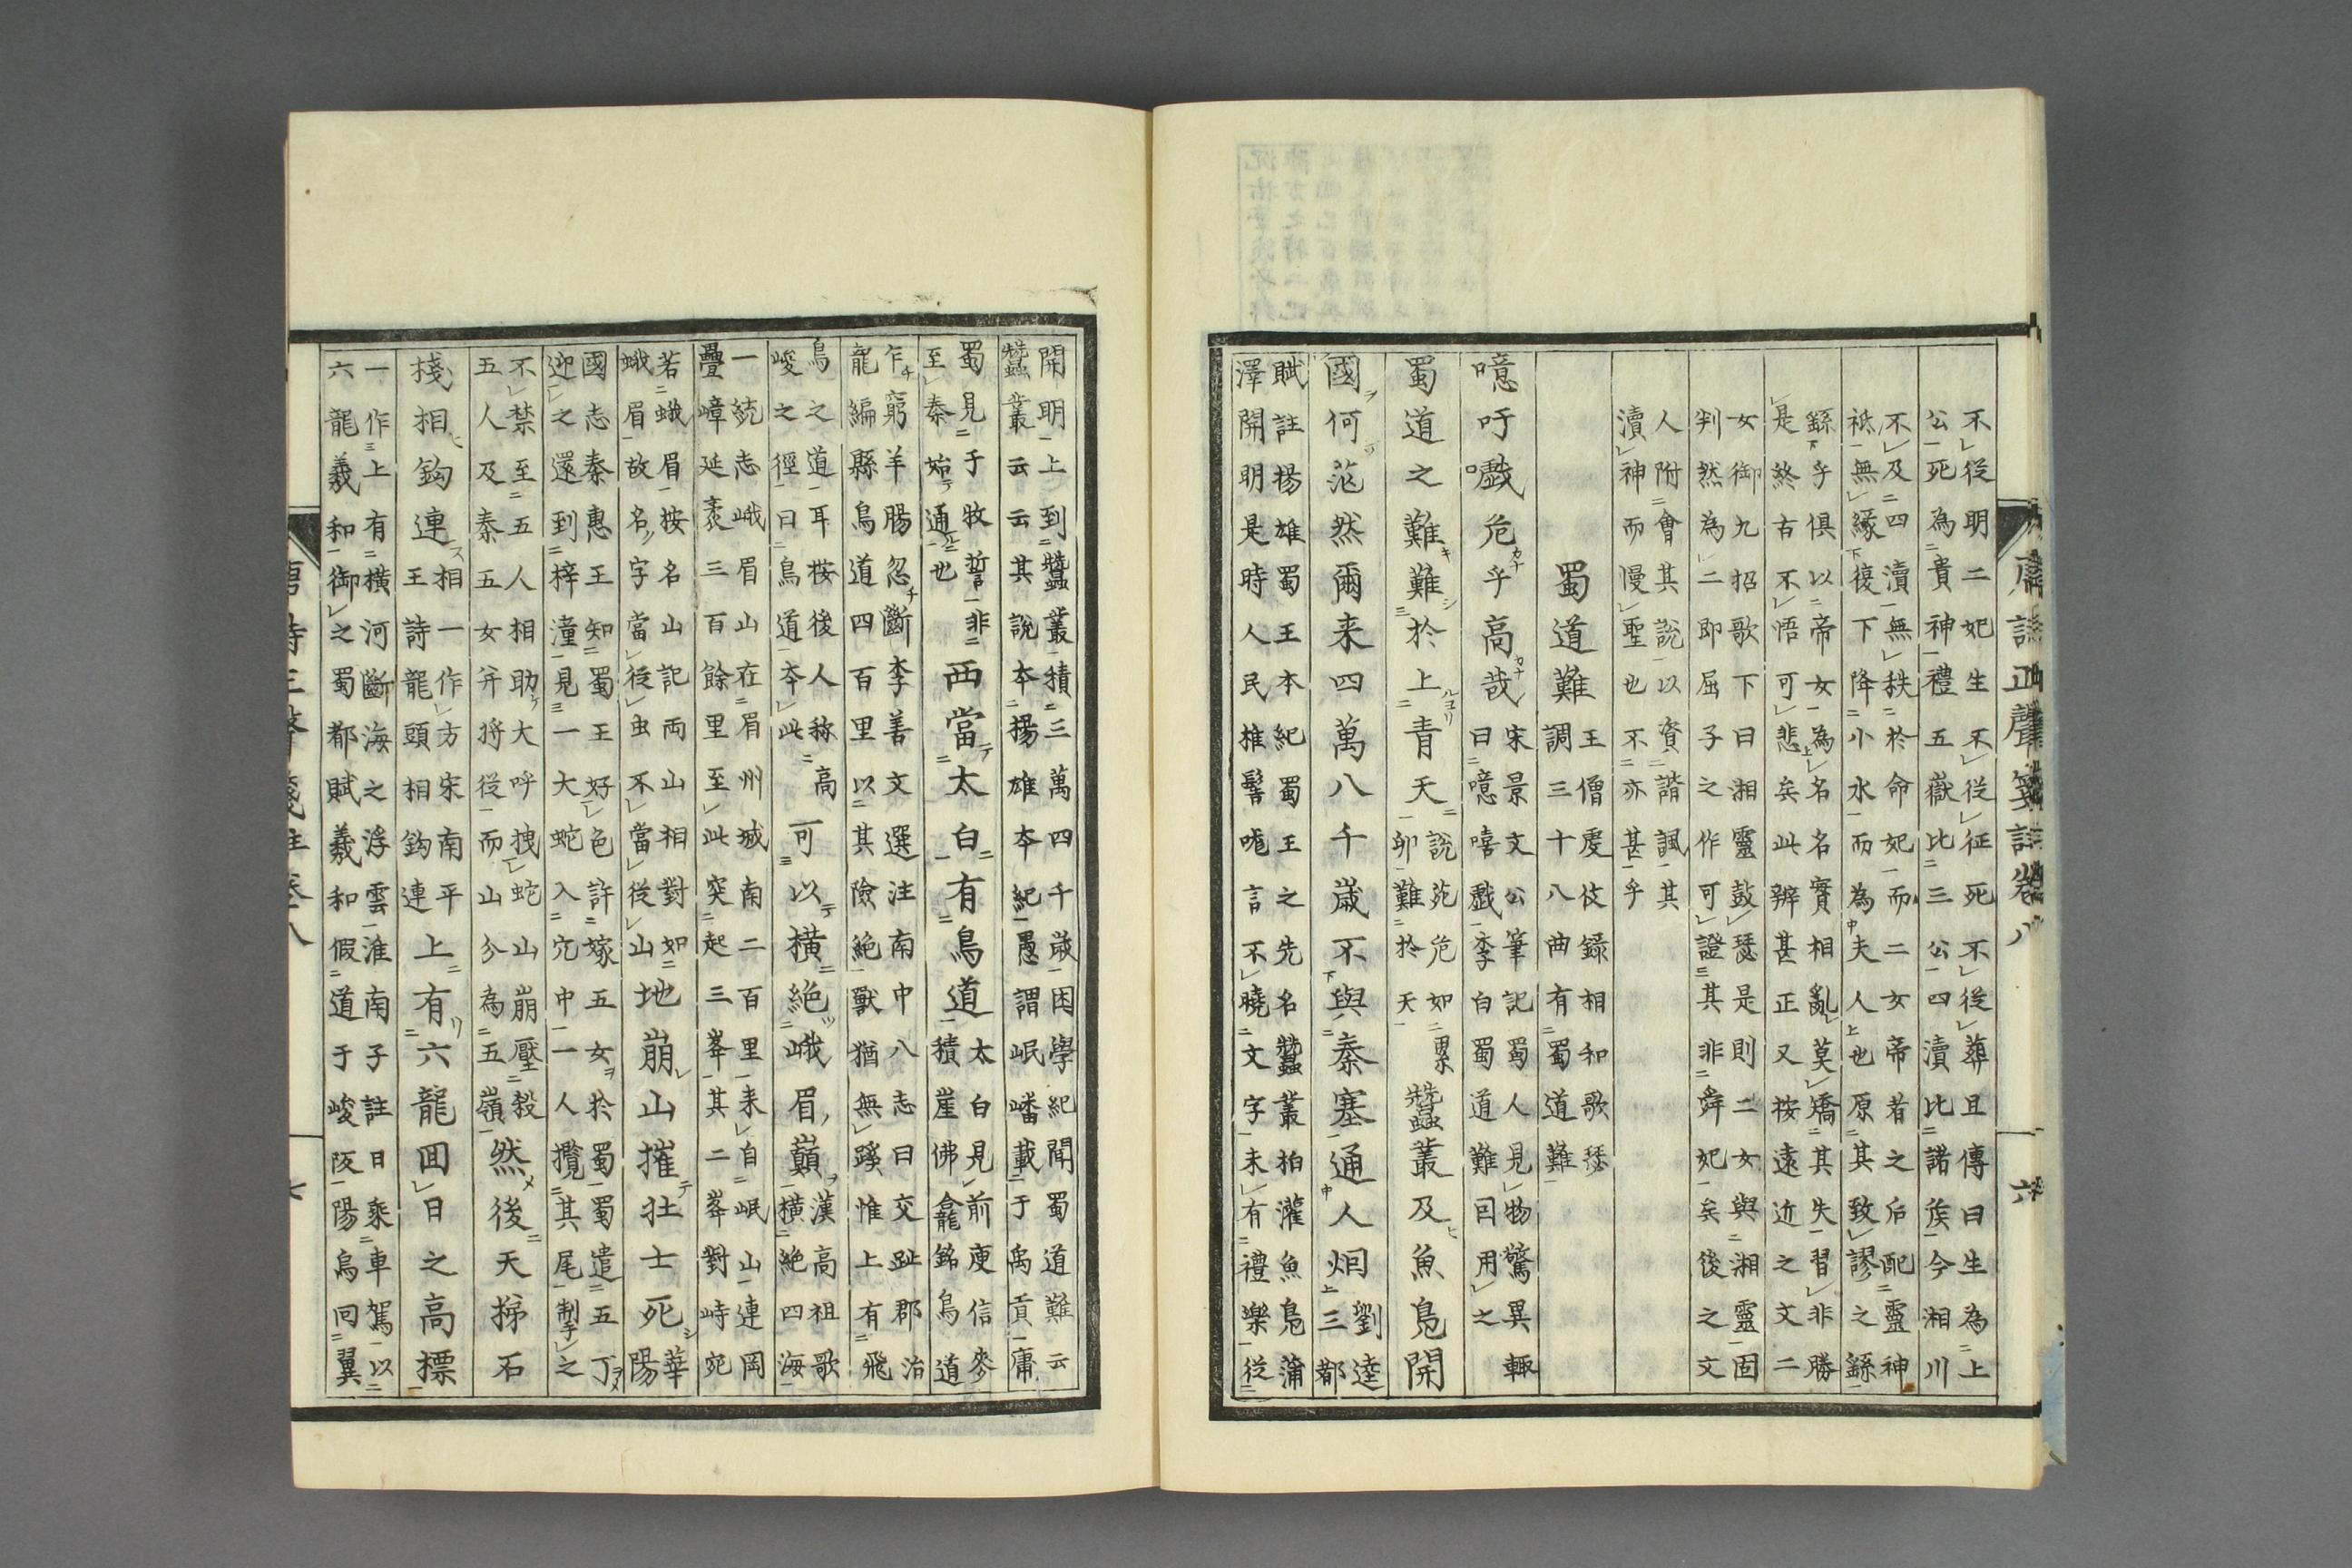 不從明二妃生不從征死不從葬且傳曰生為上
公死為貴神禮五嶽比三公四瀆比諸侯今湘川
不及四瀆無秩於命妃而二女帝者之后配靈神
祗無緣復下降小水而為夫人也原其致謬之繇
繇乎俱以帝女為名名實相亂莫矯其失習非勝
是終古不悟可悲矣此辨甚正又按遠近之文二
女御九招歌下曰湘靈鼓瑟是則二女與湘靈固
判然為二即屈子之作可證其非舜妃矣後之文
人附會其說以資諧諷其
瀆神而慢聖也不亦甚乎
蜀道難
王僧虔伎錄相和歌瑟
調三十八曲有蜀道難
噫吁嚱危乎高哉
宋景文公筆記蜀人見物驚異輒
曰噫嘻戲李白蜀道難因用之
蜀道之難難於上青天
說苑危如累
卵難於天
蠶叢及魚鳧開
國何茫然爾来四萬八千歲不與秦塞通人烟
劉逵三都
賦註楊雄蜀王本紀蜀王之先名蠶叢柏灌魚鳧蒲
澤開明是時人民椎髻哤言不曉文字未有禮樂從
開明上到蠶叢積三萬四千歲困學紀聞蜀道難云
蠶叢云云其說本揚雄本紀愚謂岷嶓載于禹貢庸
蜀見于牧誓非
至秦始通也
西當太白有鳥道
太白見前庾信麥
積崖佛龕銘鳥道
乍窮羊腸忽斷李善文選注南中八志曰交趾郡治
龍編縣鳥道四百里以其險絕獸猶無蹊惟上有飛
鳥之道耳按後人稱高
峻之徑曰鳥道本此
可以橫絕峨眉巔
漢高祖歌
橫絕四海
一統志峨眉山在眉州城南二百里来自岷山連岡
疊嶂延袤三百餘里至此突起三峯其二峯對峙宛
若蛾眉按名山記両山相對如
蛾眉故名字當從虫不當從山
地崩山摧壮士死
華陽
國志秦惠王知蜀王好色許嫁五女於蜀蜀遣五丁
迎之還到梓潼見一大蛇入穴中一人攬其尾掣之
不禁至五人相助大呼拽蛇山崩壓殺
五人及秦五女并将從而山分為五嶺
然後天梯石
棧相鈎連
相一作方宋南平
王詩龍頭相鈎連
上有六龍回日之高標
一作上有橫河斷海之浮雲淮南子註日乘車駕以
六龍羲和御之蜀都賦羲和假道于峻阪陽烏回翼